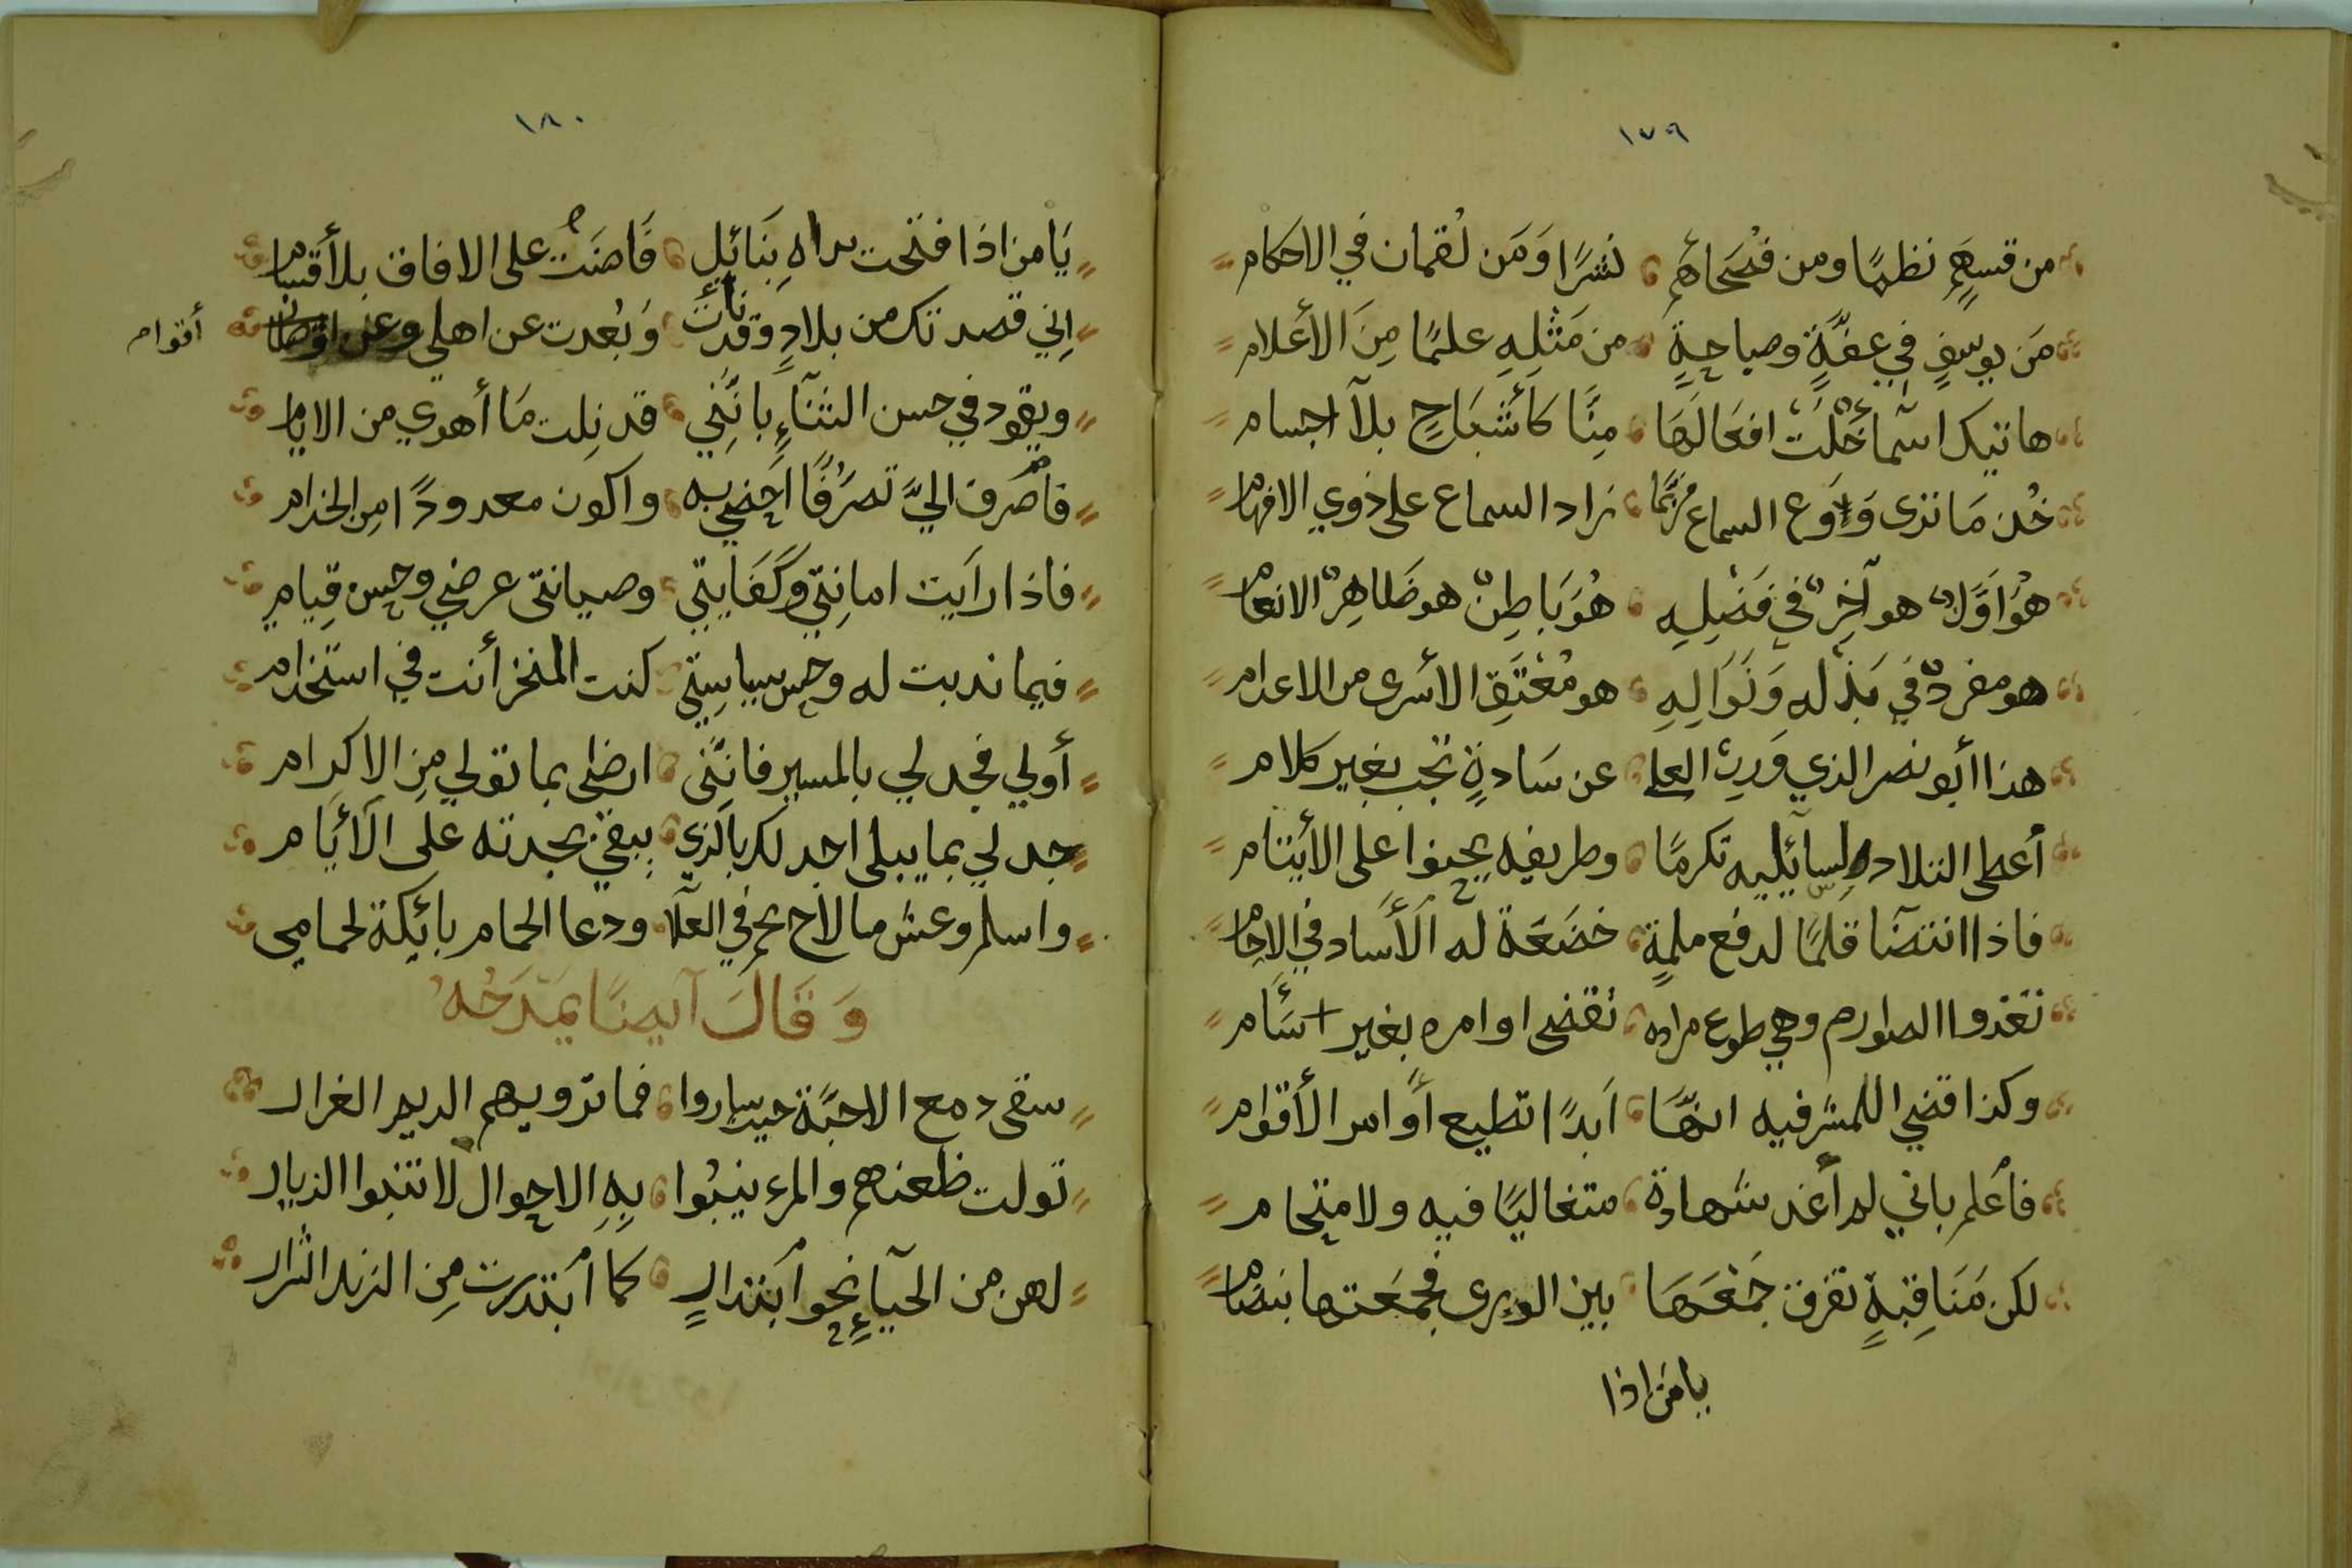 ١٧٩
من قسهم نظمًا ومن فُصَحاءهم نثرًا وَمَن لقمان في الاحكام
مَن يوسفٍ في عفَّةٍ وصباحةٍ من مَثلِهِ علمًا مِنَ الأعلام
هاتيك اسما خَلَت افعالَهَا مِنَّا كأشْبَاحٍ بلا اجسام
خُذ مَا ترى وَدَعِ السماع فرُبَّما زاد السماع على ذوي الافهام
هُوَ اوَّلٌ هو آخِرٌ في فَضلِهِ هُوَ بَاطِنٌ هو ظَاهِرُ الانعام
هو مفردٌ في بَذله وَنَوَالِهِ هو مُعْتَقِ الأسرى من الاعدام
هذا أبو نصر الذي وَرِث العلا عن سَادةٍ نجب بغير كلام
أعطى التلاد لِسآئليه تكرمًا وطريفه يحبوا على الأيتام
فاذا انتضَا قلمًا لدفع ملمةٍ خضَعَة له الأَساد في الاجام
تغدوا الصوارم وهي طوع مراده تقضى اوامره بغير سَئام
وكذا قضي اللمشرفيه انهَّا اَبدًا تطيع أَوامر الأقوام
فأعلم باني لم أغد شهادة متغاليًا فيه ولا متحام
لكن مَنَاقِبهٍ تفرق جَمْعَهَا بين الورى فجمعَتها بنضام
يا مَن اذا
١٨٠
يَا من اذا فتحت يداهِ بِنَائلِ فَاضَتْ على الافاق بلا أقسام
اِني قصدتك من بلادٍ قد نأت وَبُعدت عن اهلي وعن اوطان
أقوام
ويقود في حسن الثنآءِ بانَّني قد نِلت مَا أهوي من الايام
فأصرف اليَّ تصرُّفًا اَحضي به واكون معدودًا من الخدام
فاذا رأيت امانِتي وكَفَايتي وصيانتى عرضي وحسن قِيام
فيما ندبت له وحسن سياسِتي كنت المنخز أنت في استخدام
أولي فجد لي بالمسير فانَّنى ارضى بما تولي مِن الاكرام
جد لي بما يبلى اجد لك بالذي يبقي بجدته على الأيَام
واسلم وعش ما لاح نجم في العلا ودعا الحمام بائكة لحمامي
وَقَالَ آيضًا يَمْدَحُهُ
سقى دمع الاحبَّة حيث ساروا فما ترويهم الديم الغزار
تولت ظعنهم والمرء ينبُوا بِهِ الاحوال لا تنبوا الديار
لهن من الحيآءِ نحو أبتدارٍ كما أبتدرت مِن الزند الشرار